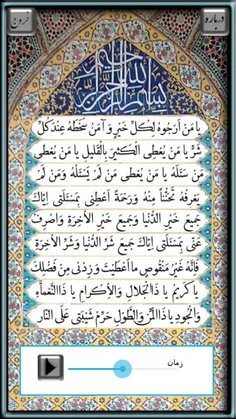 درباره
خروج
بسم الله الرحمن الرحیم
یا مَنْ اَرْجُوهُ لِکُلِّ خَیْرٍ وَ آمَنُ سَخَطَهُ عِنْدَ کُلِّ
شَرٍّ یا مَنْ یُعْطِی الْکَثیرَ بِالْقَلیلِ یا مَنْ یُعْطی
مَنْ سَئَلَهُ یا مَنْ یُعْطی مَنْ لَمْ یَسْئَلْهُ وَمَنْ لَمْ
یَعْرِفْهُ تَحَنُّناً مِنْهُ وَرَحْمَةً اَعْطِنی بِمَسْئَلَتی اِیّاکَ
جَمیعَ خَیْرِ الدُّنْیا وَجَمیعَ خَیْرِ الْأخِرَةِ وَاصْرِفْ
عَنّی بِمَسْئَلَتی اِیّاکَ جَمیعَ شَرِّ الدُّنْیا وَشَرِّ الْأخِرَةِ
فَاِنَّهُ غَیْرُ مَنْقُوصٍ ما اَعْطَیْتَ وَزِدْنی مِنْ فَضْلِكَ
یا کَریمُ یا ذَاالْجَلالِ وَالْاِکْرامِ یا ذَاالنَّعْماَّءِ
وَالْجُودِ یا ذَاالْمَنِّ وَالطَّوْلِ حَرِّمْ شَیْبَتی عَلَی النّار
زمان